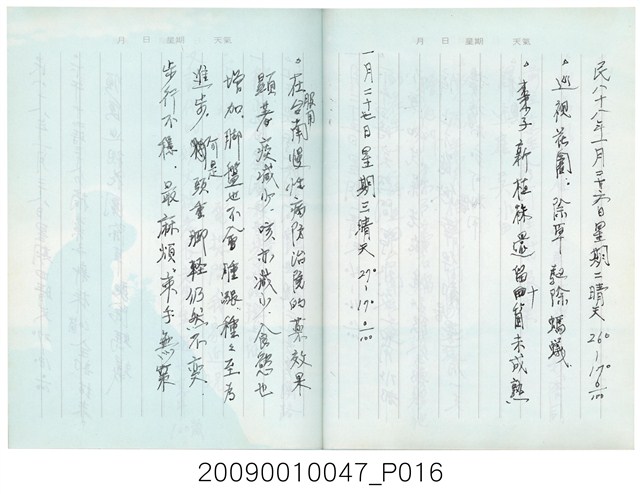 月 日 星期 天氣
民八十八年一月二十六日星期二晴天 26°-17°
。巡視花園.除草 驅除螞蟻
。棗子新植株還留四十箇未成熟
月 日 星期 天氣
一月二十七日星期三晴天 27°-17°
。在台南慢性病防治院的藥效果
服用
顯著痰減少.咳亦減少.食慾也
增加.腳盤也不會腫跟.種々至為
進步.可是頭重腳輕仍然不変.
步行不穩.最麻煩.束手無策
20090010047_P016